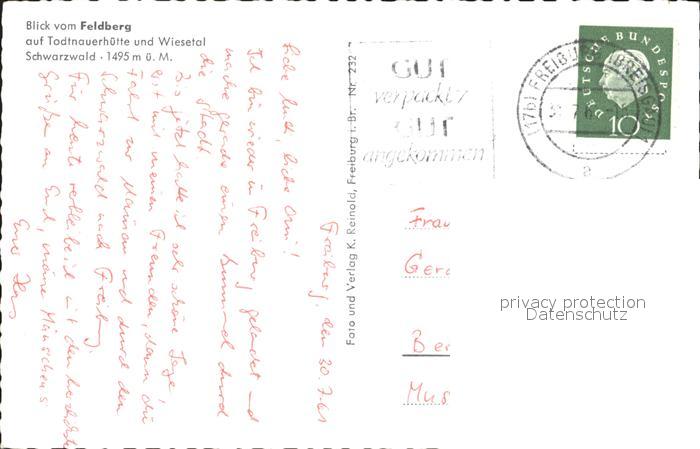 Blick vom Feldberg
auf Todtnauerhütte und Wiesetal
Schwarzwald · 1495 m ü. M.
Freiburg, den 30.7.61
liebe Omi!
Ich bin wieder in Freiburg gelandet und
mache gerade einen Bummel durch
die Stadt.
Bis jetzt hatte ich sehr schöne Tage
mit meinen Freunden, dann die
Fahrt zur und durch den
Schwarzwald nach Freiburg.
Für heute verbleibe ich mit den herzlichsten
Grüßen an Euch, meine Mäuschens
Euer
Foto und Verlag K. Reinold, Freiburg i. Br. Nr. 232
GUT
verpackt
GUT
angekommen
(17b) FREIBURG (BREISGAU)
a
DEUTSCHE BUNDESPOST
10
Frau
Ger
Be
Mus
privacy protection
Datenschutz